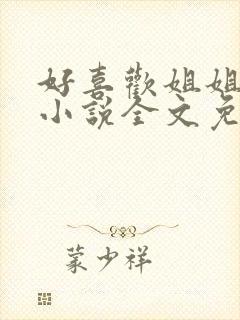 好喜歡姐姐
小說全文免
蒙少祥